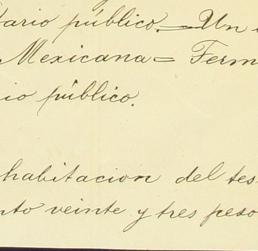 tario público.=Un
Mexicana= Ferm
io público.
habitacion del tes
nto veinte y tres peso